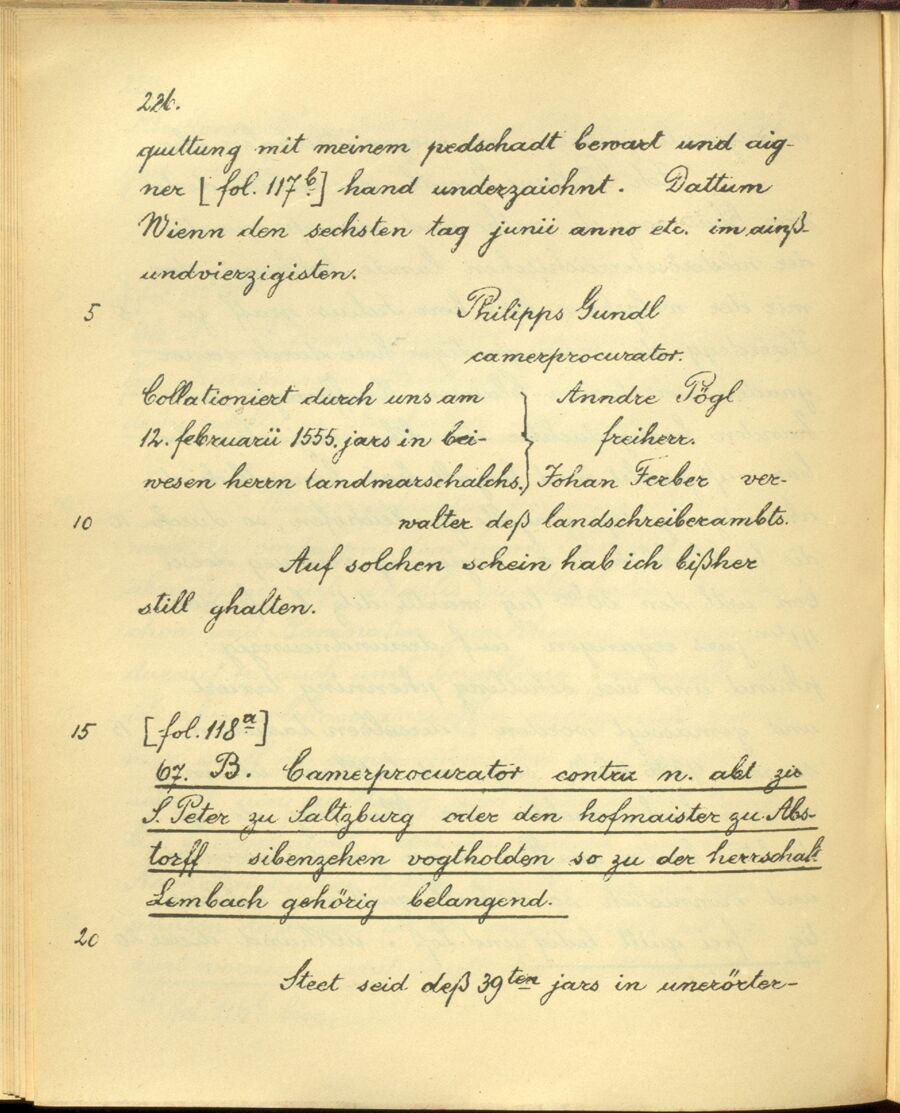 226.
quittung mit meinem pedschadt bewart und aig-
ner [fol. 117b] hand underzaichnt. Dattum
Wienn den sechsten tag junii anno etc. im ainß-
undvierzigisten.
5 Philipps Gundl
camerprocurator.
Collationiert durch uns am } Anndre Pögl
12. februarii 1555. jars in bei- freiherr.
wesen herrn landmarschalchs. Johan Ferber ver-
10 walter deß landschreiberambts.
Auf solchen schein hab ich bißher
still ghalten.
15 [fol. 118a]
67. B. Camerprocurator contra n. abt zu
S. Peter zu Saltzburg oder den hofmaister zu Abs-
torff sibenzehen vogtholden so zu der herrschaft
Lembach gehörig belangend.
20
Steet seid deß 39ten jars in unerörter-